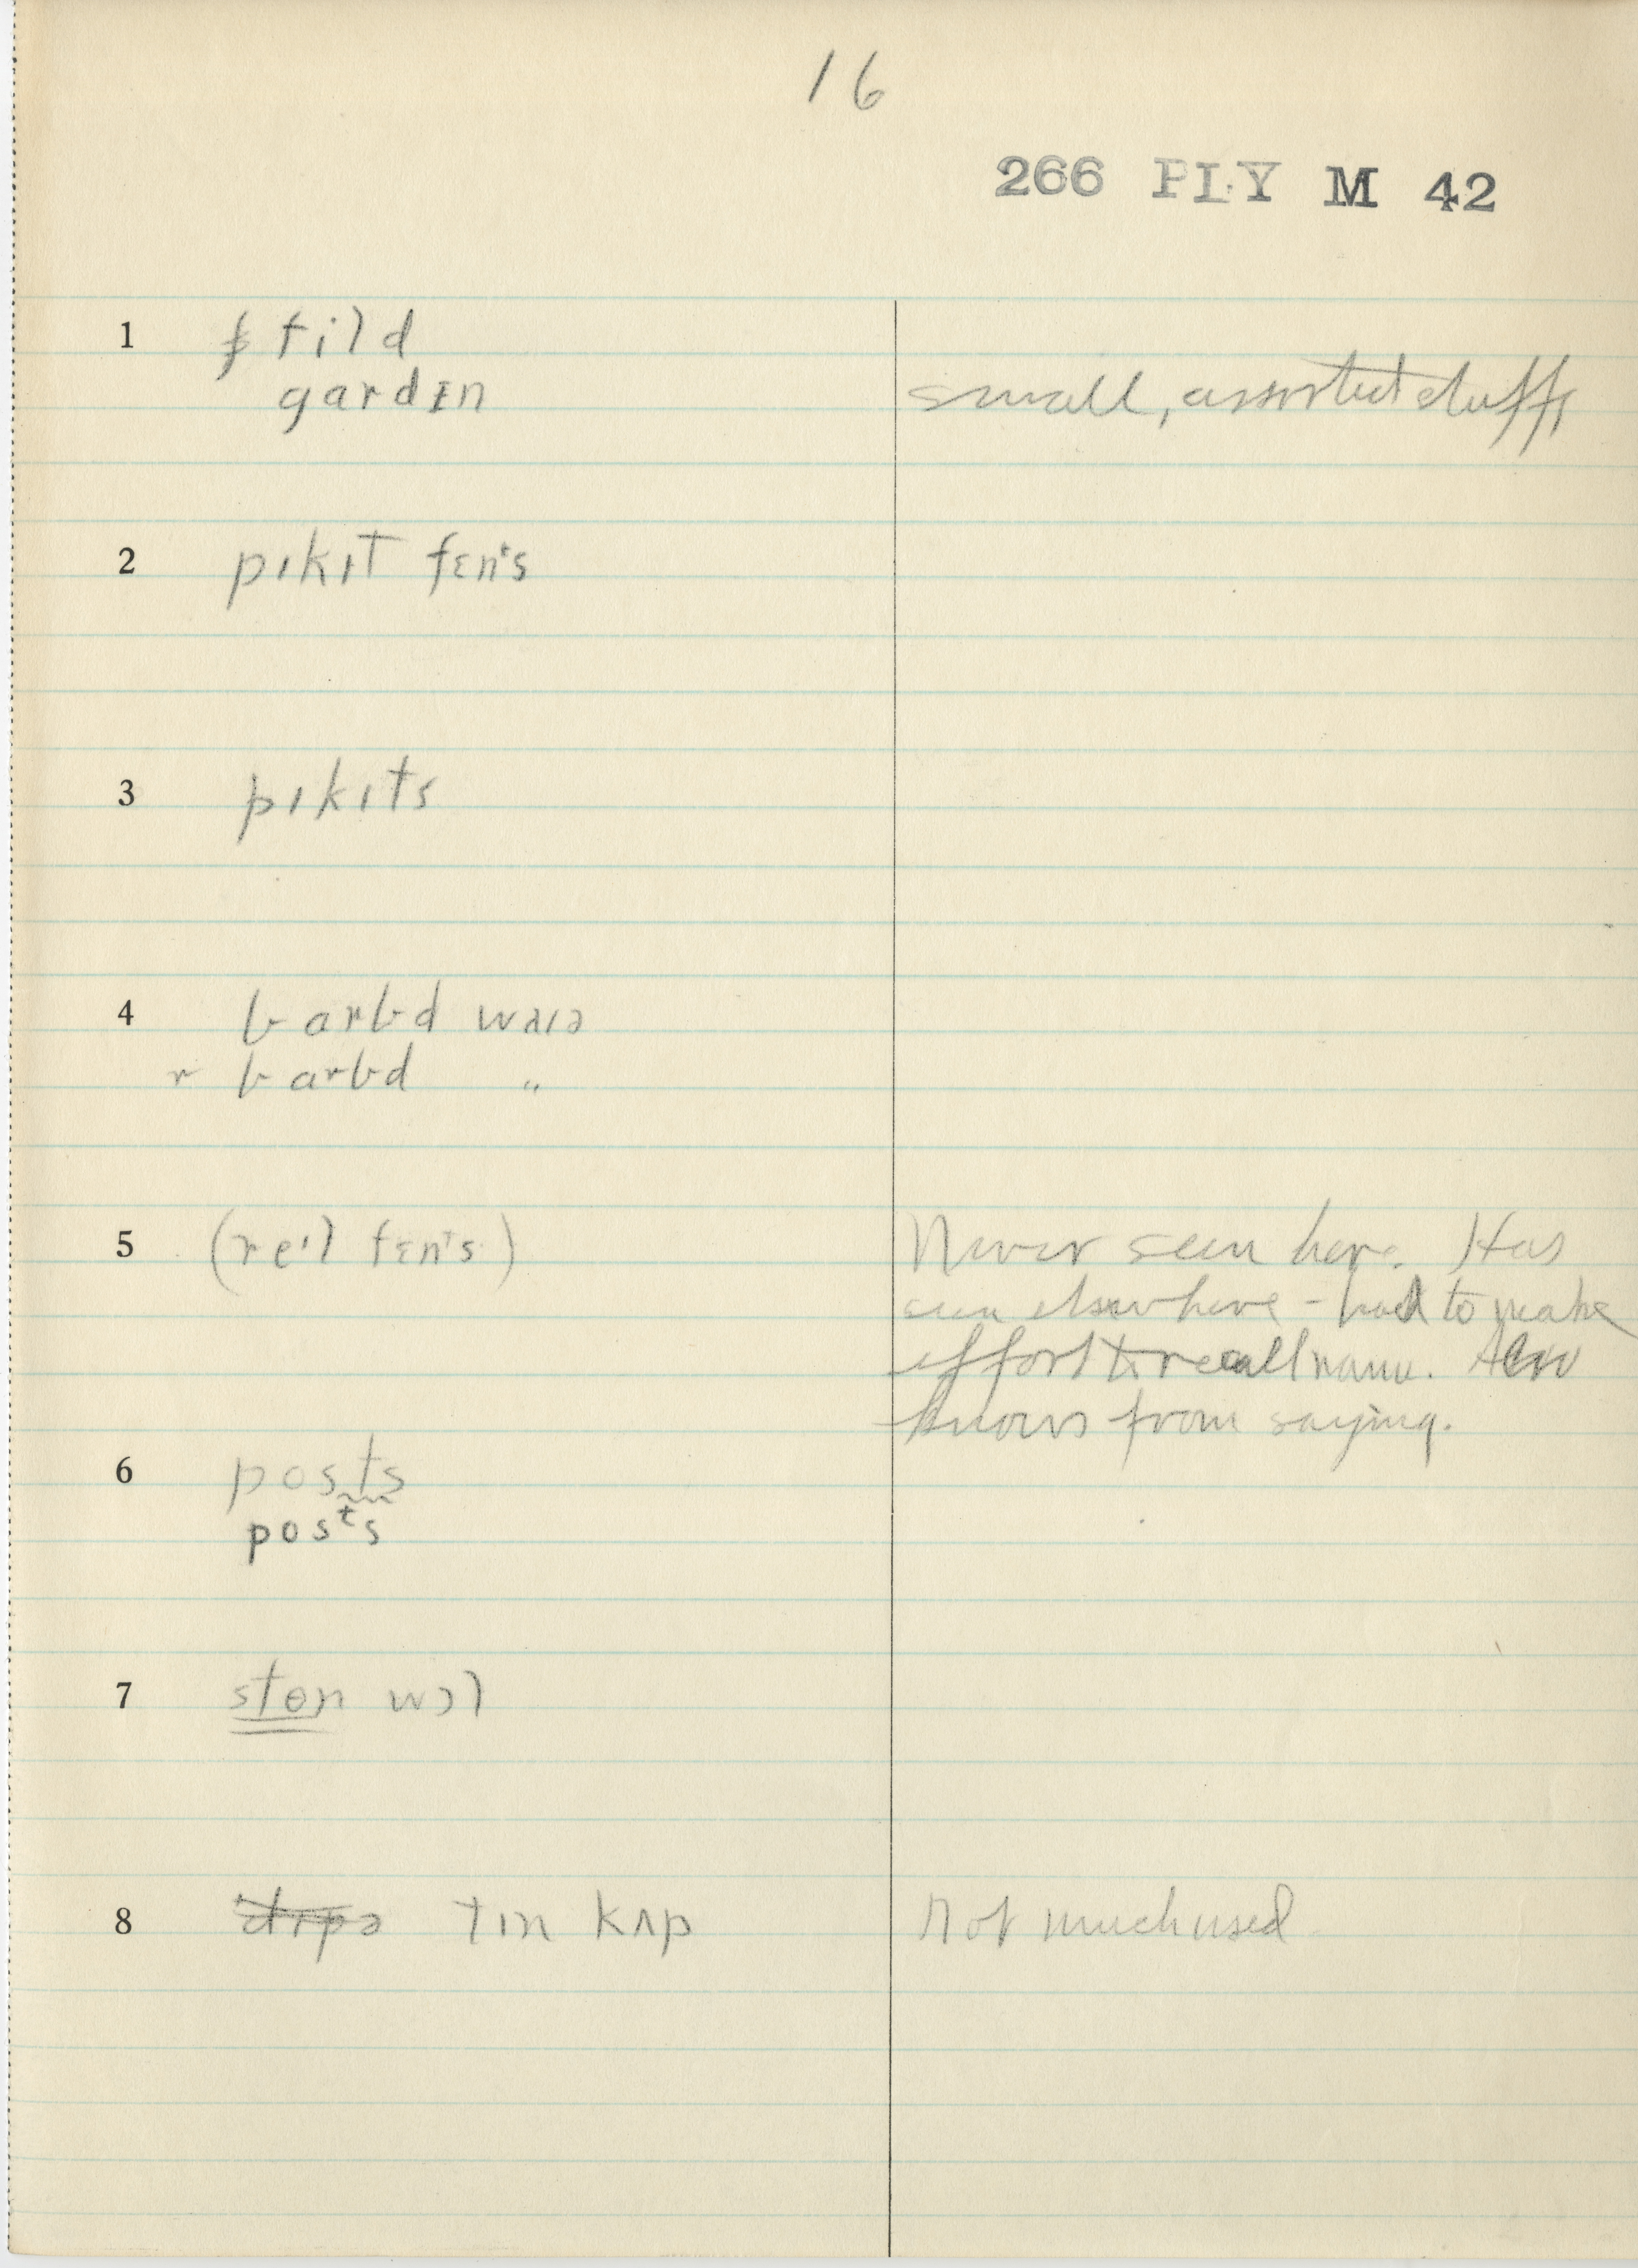 16
266 PLY M 42
1 fild
gardɪn small, assorted stuff
2 pɪkɪt fɛnᵗs
3 pɪkɪts
4 barbd waɪə
r barbd "
5 (reɪl fɛnᵗs) Never seen here. Has
seen elsewhere - had to make
effort to recall name. Also
knows from saying.
6 posts
posᵗs
7 stɵn wɔl
8 tɪn kʌp Not much used